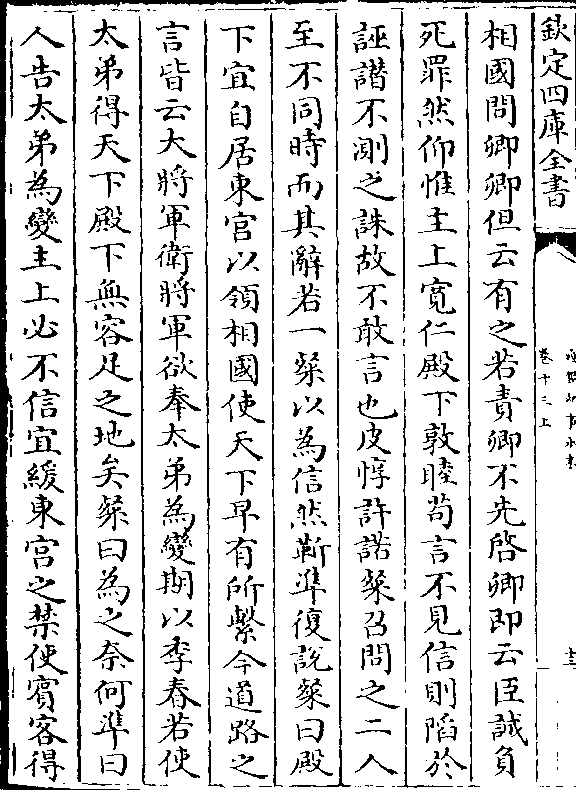 欽定四庫全書
卷十三上
十三
相國問卿卿但云有之若責卿不先啓卿即云臣誠負
死罪然仰惟主上寛仁殿下敦睦茍言不見信則陷於
誣譖不測之誅故不敢言也皮惇許諾粲召問之二人
至不同時而其辭若一粲以為信然靳凖復說粲曰殿
下宜自居東宮以領相國使天下早有所繫今道路之
言皆云大將軍衛將軍欲奉太弟為變期以季春若使
太弟得天下殿下無容足之地矣粲曰為之奈何凖曰
人告太弟為變主上必不信宜緩東宮之禁使賓客得